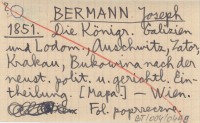 BERMANN Joseph
1851. Die Königr. Galizien
und Lodom., Auschwitz, Zator,
Krakau, Bukowina nach der
neust. polit. u. gerichtl. Ein-
theilung. [Mapa]. — Wien.
Fol. poprzeczne.